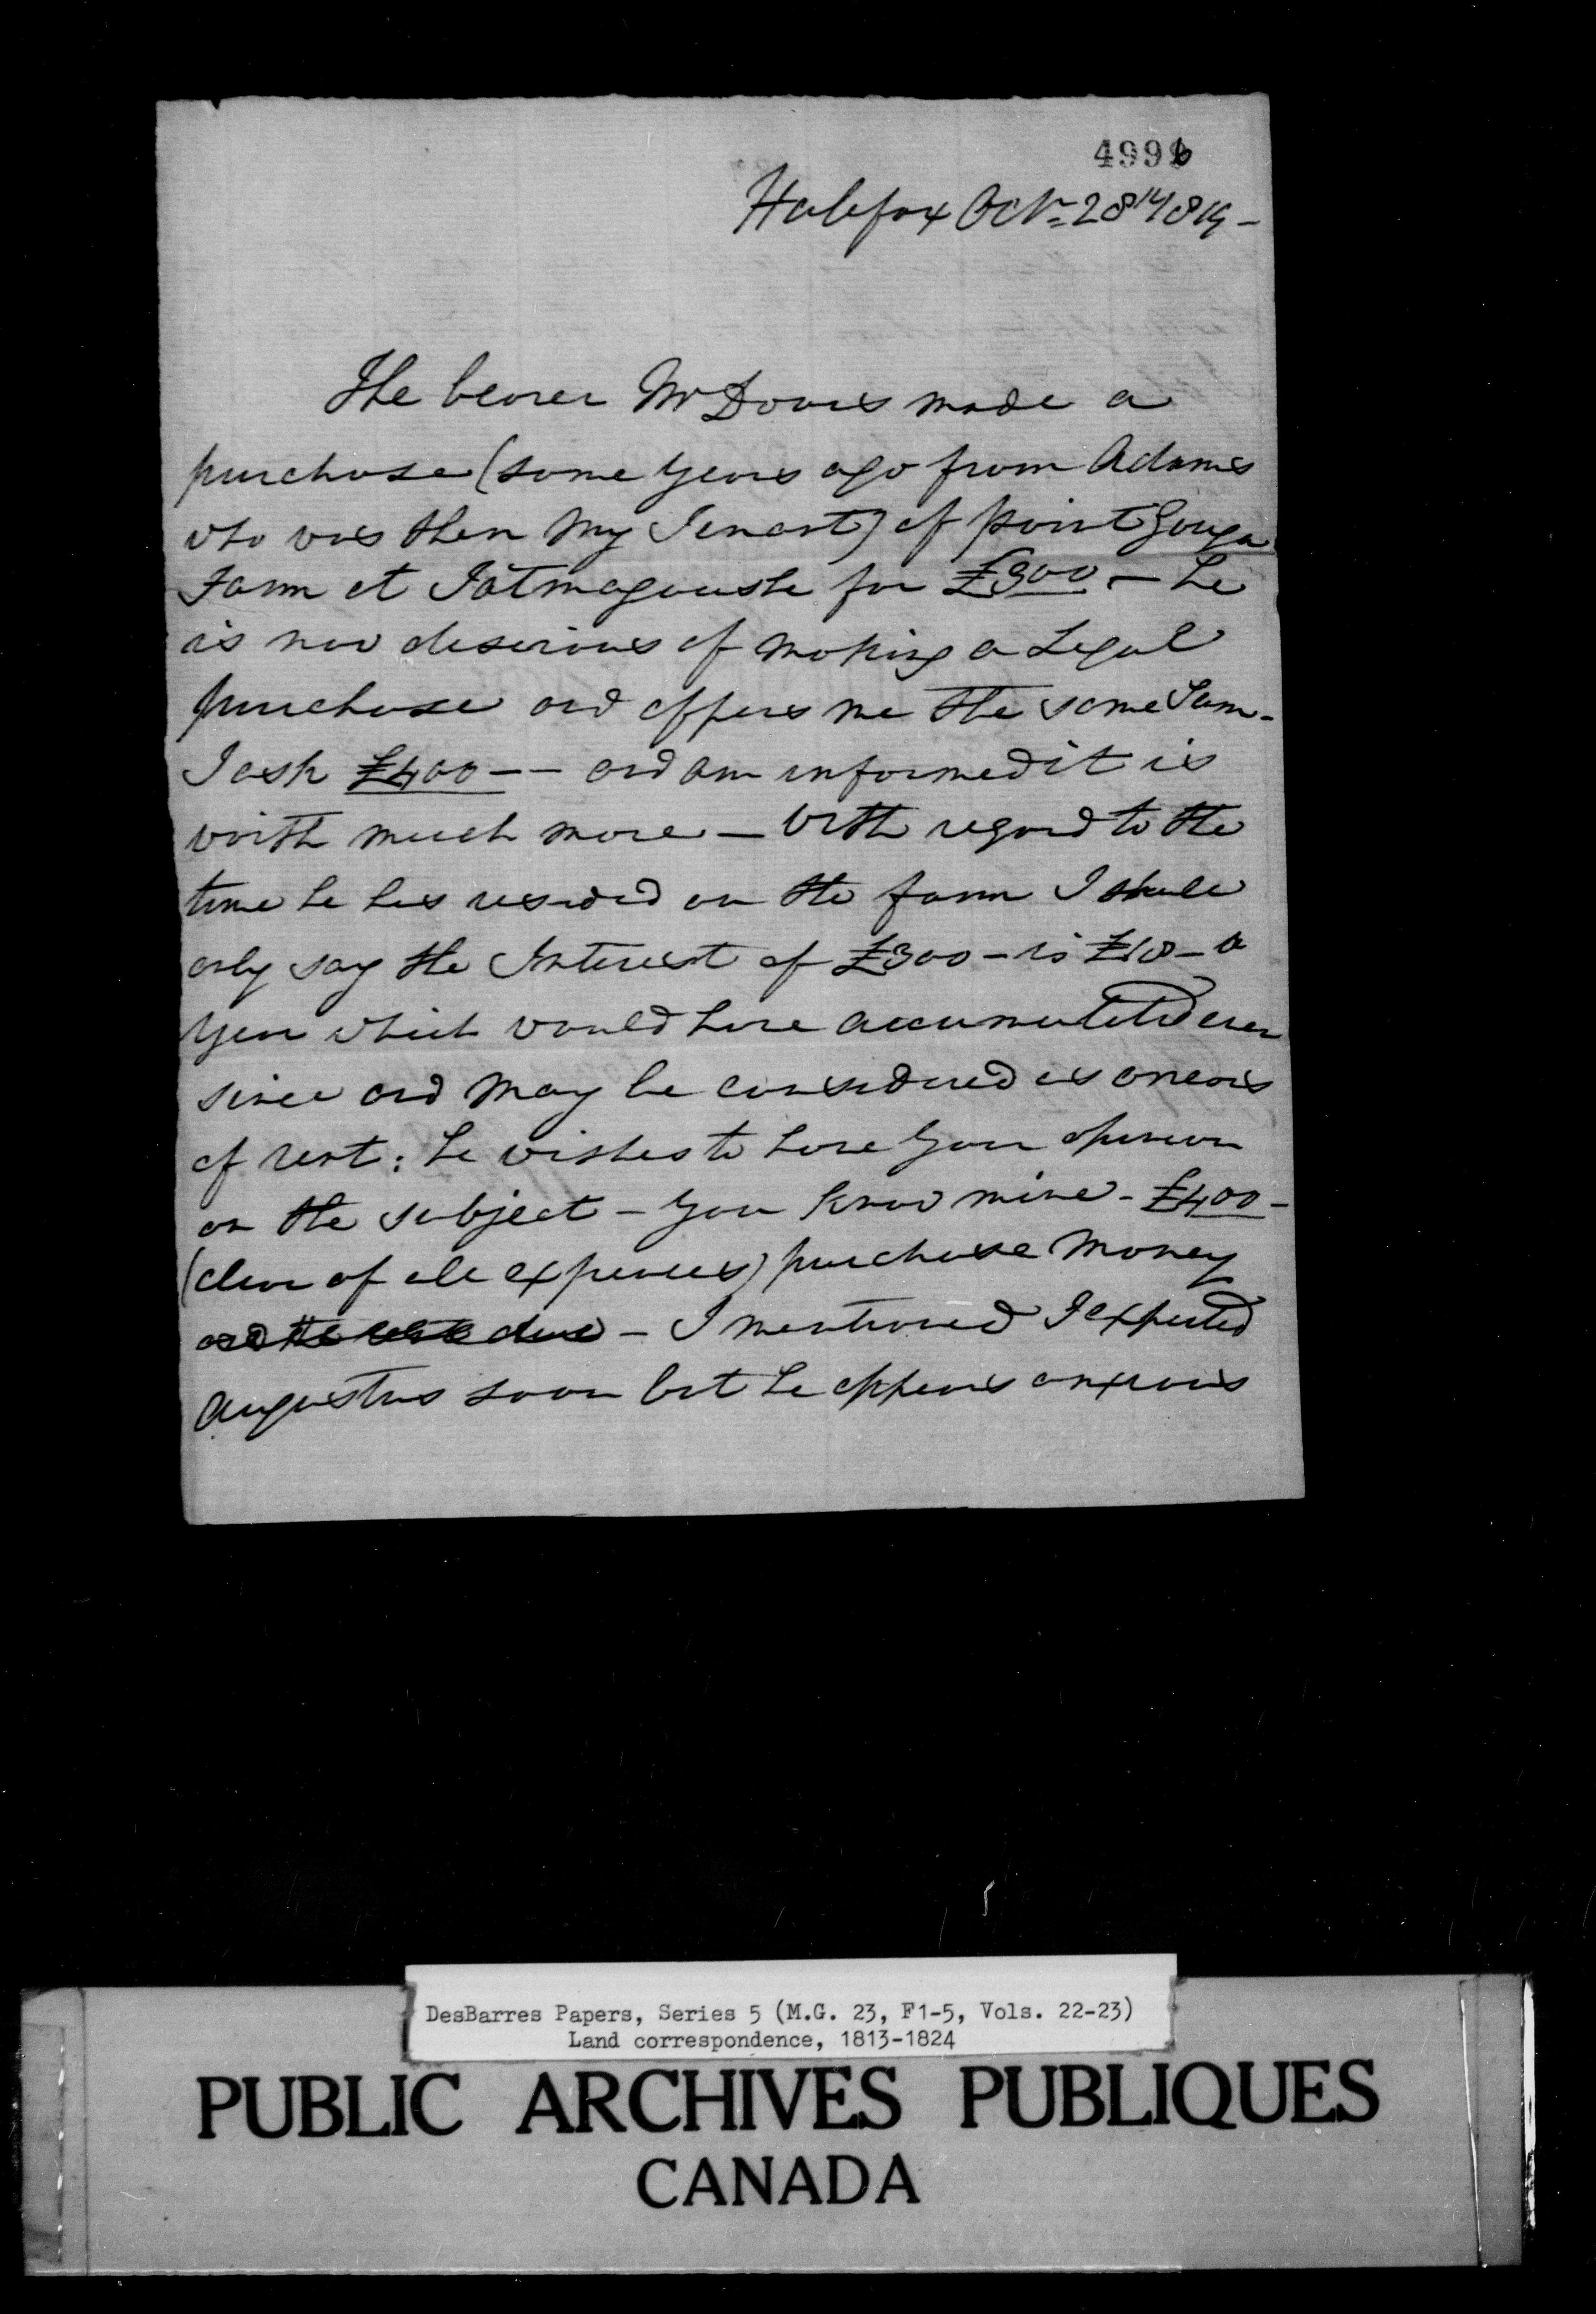 4996
Halifax Octr 28th 1819 -
The bearer Mr Davis made a
purchase (some years ago from Adams
who was then My Tenant) of point
Farm at Tatmagoushe for £300 - he
is now desirous of making a Legal
purchase and offers me the same Sum -
I ask £400 -- and am informed it is
worth much more - With regard to the
time he has resided on the farm I shall
only say the Interest of £300 - is £18 - a
year which would have accumulated ever
since and may be considered as arrears
of rent: he wishes to have your opinion
on the subject - you know mine - £400 -
(clear of all expences) purchase Money
and the due - I mentioned I expected
Augustus soon but he appears anxious
DesBarres Papers, Series 5 (M.G. 23, F1-5, Vols. 22-23)
Land correspondence, 1813-1824
PUBLIC ARCHIVES PUBLIQUES
CANADA